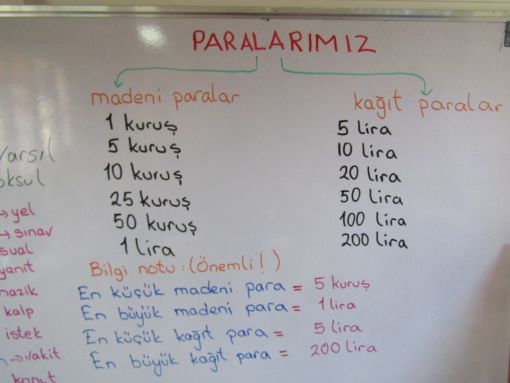 PARALARIMIZ
madeni paralar
1 kuruş
5 kuruş
10 kuruş
25 kuruş
50 kuruş
1 lira
kağıt paralar
5 lira
10 lira
20 lira
50 lira
100 lira
200 lira
Bilgi notu : (Önemli!)
En küçük madeni para = 5 kuruş
En büyük madeni para = 1 lira
En küçük kağıt para = 5 lira
En büyük kağıt para = 200 lira
→ yel
→ sınav
kalp
istek
→ vakit